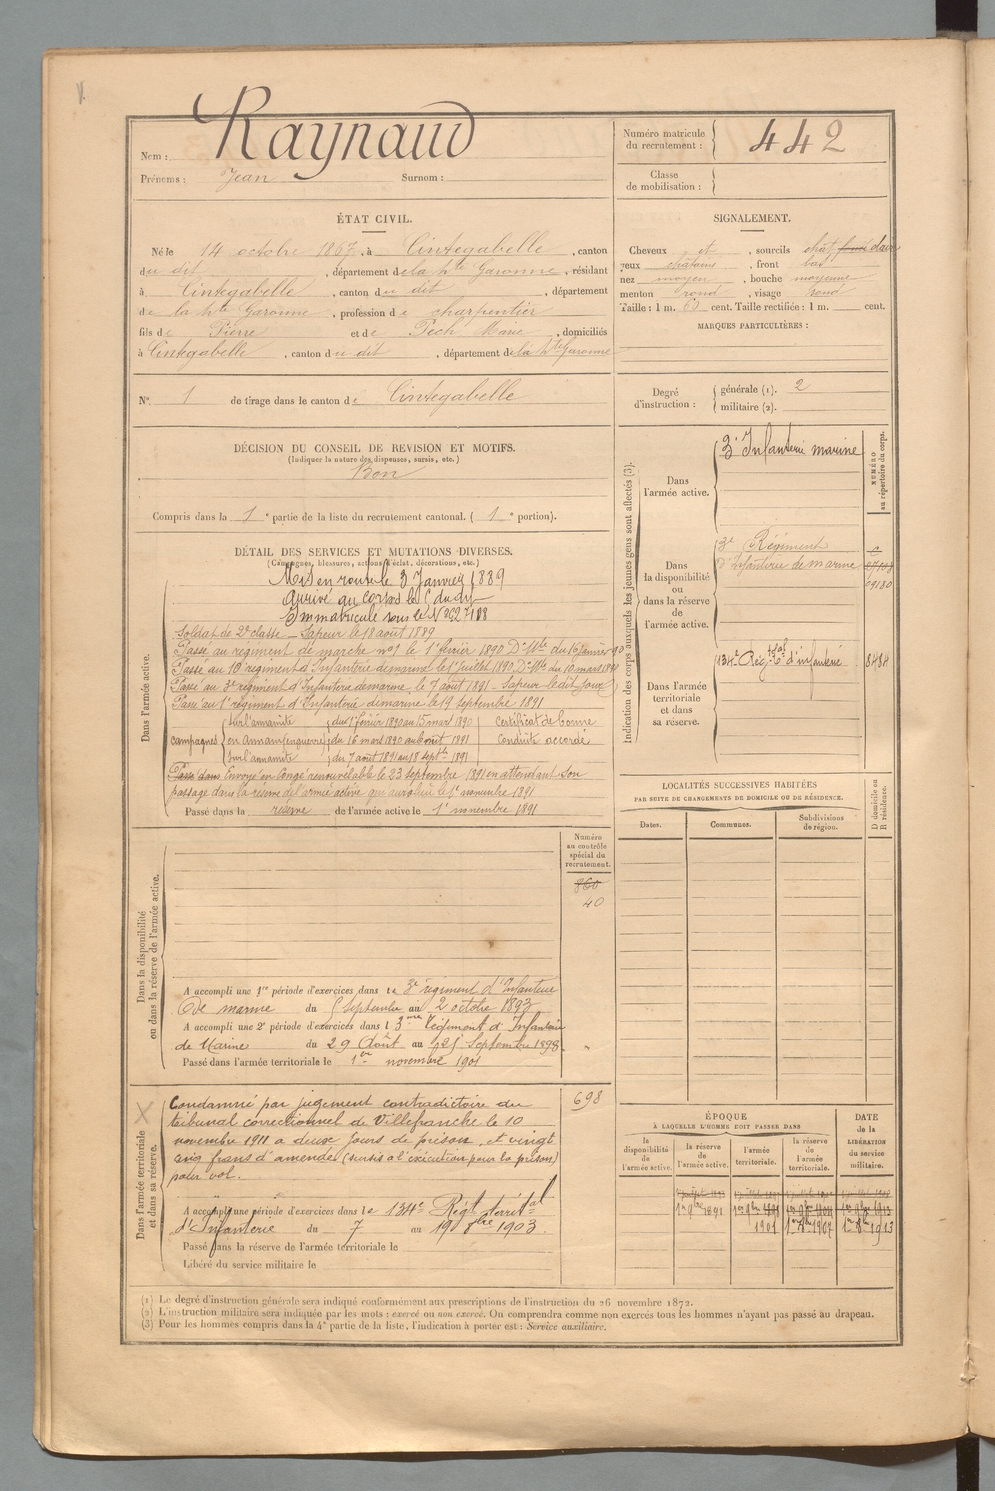 Nom : Raynaud
Prénoms : Jean Surnom :
Numéro matricule du recrutement : 442
Classe de mobilisation :
ÉTAT CIVIL.
Né le 14 octobre 1867, à Cintegabelle, canton
du dit, département de la hte Garonne, résidant
à Cintegabelle, canton du dit, département
de la hte Garonne, profession de charpentier
fils de Pierre et de Pech Marie, domiciliés
à Cintegabelle, canton du dit, département de la hte Garonne
N° 1 de tirage dans le canton de Cintegabelle
SIGNALEMENT.
Cheveux et, sourcils chât clair
yeux châtains, front bas
nez moyen, bouche moyenne
menton rond, visage rond
Taille : 1 m. 63 cent. Taille rectifiée : 1 m. cent.
MARQUES PARTICULIÈRES :
Degré d'instruction : générale (1). 2
militaire (2).
DÉCISION DU CONSEIL DE REVISION ET MOTIFS.
(Indiquer la nature des dispenses, sursis, etc.)
Bon
Compris dans la 1e partie de la liste du recrutement cantonal. (1e portion).
DÉTAIL DES SERVICES ET MUTATIONS DIVERSES.
(Campagnes, blessures, actions d'éclat, décorations, etc.)
Dans l'armée active.
Mis en route le 3 Janvier 1889
Arrivé au corps le 5 du dit
Immatriculé sous le N°
Soldat de 2e classe – Sapeur le 18 août 1889
Passé au régiment de marche n°1 le 1er février 1890 Don Mlle du 16 janvier 90
Passé au 10e régiment d'Infanterie de marine le 1er juillet 1890. Don Mlle du 10 mars 1890
Passé au 3e régiment d'Infanterie de marine le 7 août 1891 – Sapeur le dit jour
Passé au 1er régiment d'Infanterie de marine le 19 septembre 1891
campagnes
du 1er février 1890 au 15 mars 1890
en Annam (en guerre) du 16 mars 1890 au 6 août 1891
du 7 août 1891 au 18 septbre 1891
Certificat de bonne
conduite accordé
Passé dans Envoyé en Congé renouvelable le 23 septembre 1891 en attendant son
passage dans la réserve de l'armée active qui aura lieu le 1er novembre 1891
Passé dans la réserve de l'armée active le 1er novembre 1891
Indication des corps auxquels les jeunes gens sont affectés (3).
NUMÉRO au répertoire du corps.
Dans l'armée active.
3e Infanterie marine
Dans la disponibilité ou dans la réserve de l'armée active.
3e Régiment
d'Infanterie de marine
Dans l'armée territoriale et dans sa réserve.
134e Régt tal d'infanterie 8484
LOCALITÉS SUCCESSIVES HABITÉES
PAR SUITE DE CHANGEMENTS DE DOMICILE OU DE RÉSIDENCE.
Dates. Communes. Subdivisions de région. D domicile ou R résidence.
Dans la disponibilité ou dans la réserve de l'armée active.
Numéro au contrôle spécial du recrutement.
860
40
A accompli une 1re période d'exercices dans le 3e régiment d'Infanterie
de marine du 5 septembre au 2 octobre 1893
A accompli une 2e période d'exercices dans l 3me Régiment d'Infanterie
de Marine du 29 Août au 25 Septembre 1898.
Passé dans l'armée territoriale le 1er novembre 1901
Dans l'armée territoriale et dans sa réserve.
698
Condamné par jugement contradictoire du
tribunal correctionnel de Villefranche le 10
novembre 1911 a deux jours de prison, et vingt
cinq francs d'amende (sursis a l'exécution pour la prison)
pour vol.
A accompli une période d'exercices dans le 134e Régt territal
d'Infanterie du 7 au 19 8bre 1903
Passé dans la réserve de l'armée territoriale le
Libéré du service militaire le
ÉPOQUE
À LAQUELLE L'HOMME DOIT PASSER DANS
la disponibilité de l'armée active. la réserve de l'armée active. l'armée territoriale. la réserve de l'armée territoriale.
DATE de la LIBÉRATION du service militaire.
1er 9bre 1891
1901 1er 8bre 1907 1er 8bre 1913
(1) Le degré d'instruction générale sera indiqué conformément aux prescriptions de l'instruction du 26 novembre 1872.
(2) L'instruction militaire sera indiquée par les mots : exercé ou non exercé. On comprendra comme non exercés tous les hommes n'ayant pas passé au drapeau.
(3) Pour les hommes compris dans la 4e partie de la liste, l'indication à porter est : Service auxiliaire.